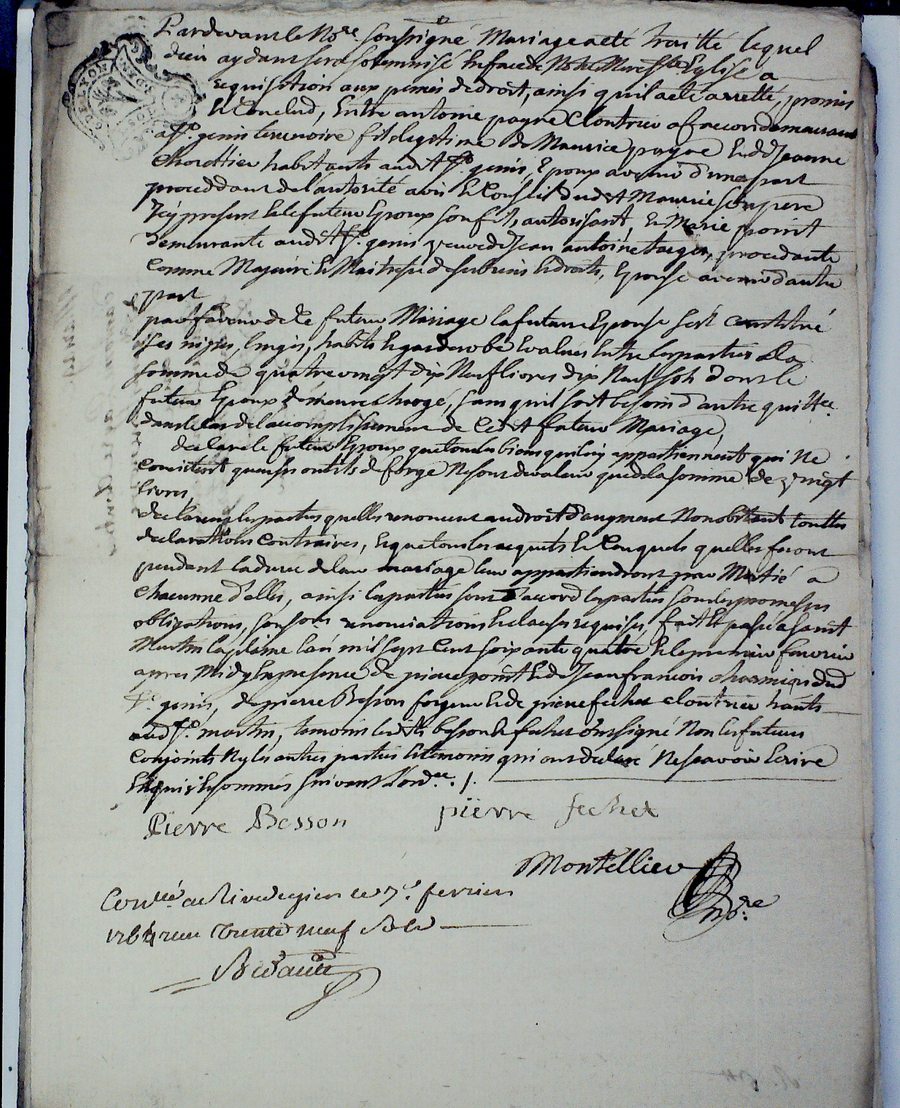 Pardevant le No.re soussigné Mariage a eté traitté lequel
dieu aydant sera solemnisé en face de N.tre Mere S.te Eglise a
requisition aux peines de droit, ainsi quil a eté arretté, promis
et Conclud, Entre antoine payre Cloutrier a facon demeurant
a S.t genis terrenoire fils legitime de Maurice payre et de Jeanne
Chorottier habitants audit S.t genis, Epoux avenir d'une part
proceddant de l'autorité avis et Conseil dudit Maurice son pere
Icy present et le futeur Epoux son fils, autorisant, et Marie point
demeurante audit S.t genis veuve de Jean antoine procedante
Comme Majeure et Maitresse de ses biens et droits, Epouse avenir d'autre
part
par faveur de Ce futeur Mariage la future Epouse s'est Constitué
ses nippes, linges, habits et garderobe Evalués Entre les parties a la
somme de quatre vingt dix Neuf livres dix Neuf sols dont le
futeur Epoux demeure Charge, sans quil soit besoin d'autre quittce
dans le Cas de l'accomplissement de Cedit futeur Mariage,
declare le futeur Epoux que tous les biens quil luy appartiennent qui Ne
Consistent quen ses outils de forge Ne sont de valeur que de la somme de vingt
livres,
declarent les parties quelles renoncent au droit d'augment Nonobstant touttes
declarations Contraires, Et que tous les acquets et Conquets quelles feront
pendant la duree de leur mariage leur appartiendront par Moitié a
Chacunne d'elles, ainsi les parties sont d'accord les parties sous les promesses
obligations, renonciations et clauses requises, fait et passé a saint
Martin la plaine l'an mil sept Cent soixante quatre et le premier fevrier
apres Midy En presence de pierre point et de Jean francois dud
S.t genis, de pierre Besson forgeur et de pierre fechet Cloutrier h.ants
aud S.t martin, temoins lesdits besson et fechet ont signé Non les futeurs
Conjoints Ny les autres parties et temoins qui ont declaré Ne scavoir Ecrire
Enquis et sommés suivant l'ord.ce ./.
Pierre Besson pierre fechet
Montellier
No.re
Con.llé a Rivedegier le 7.e fevrier
1764 recu trente neuf sols